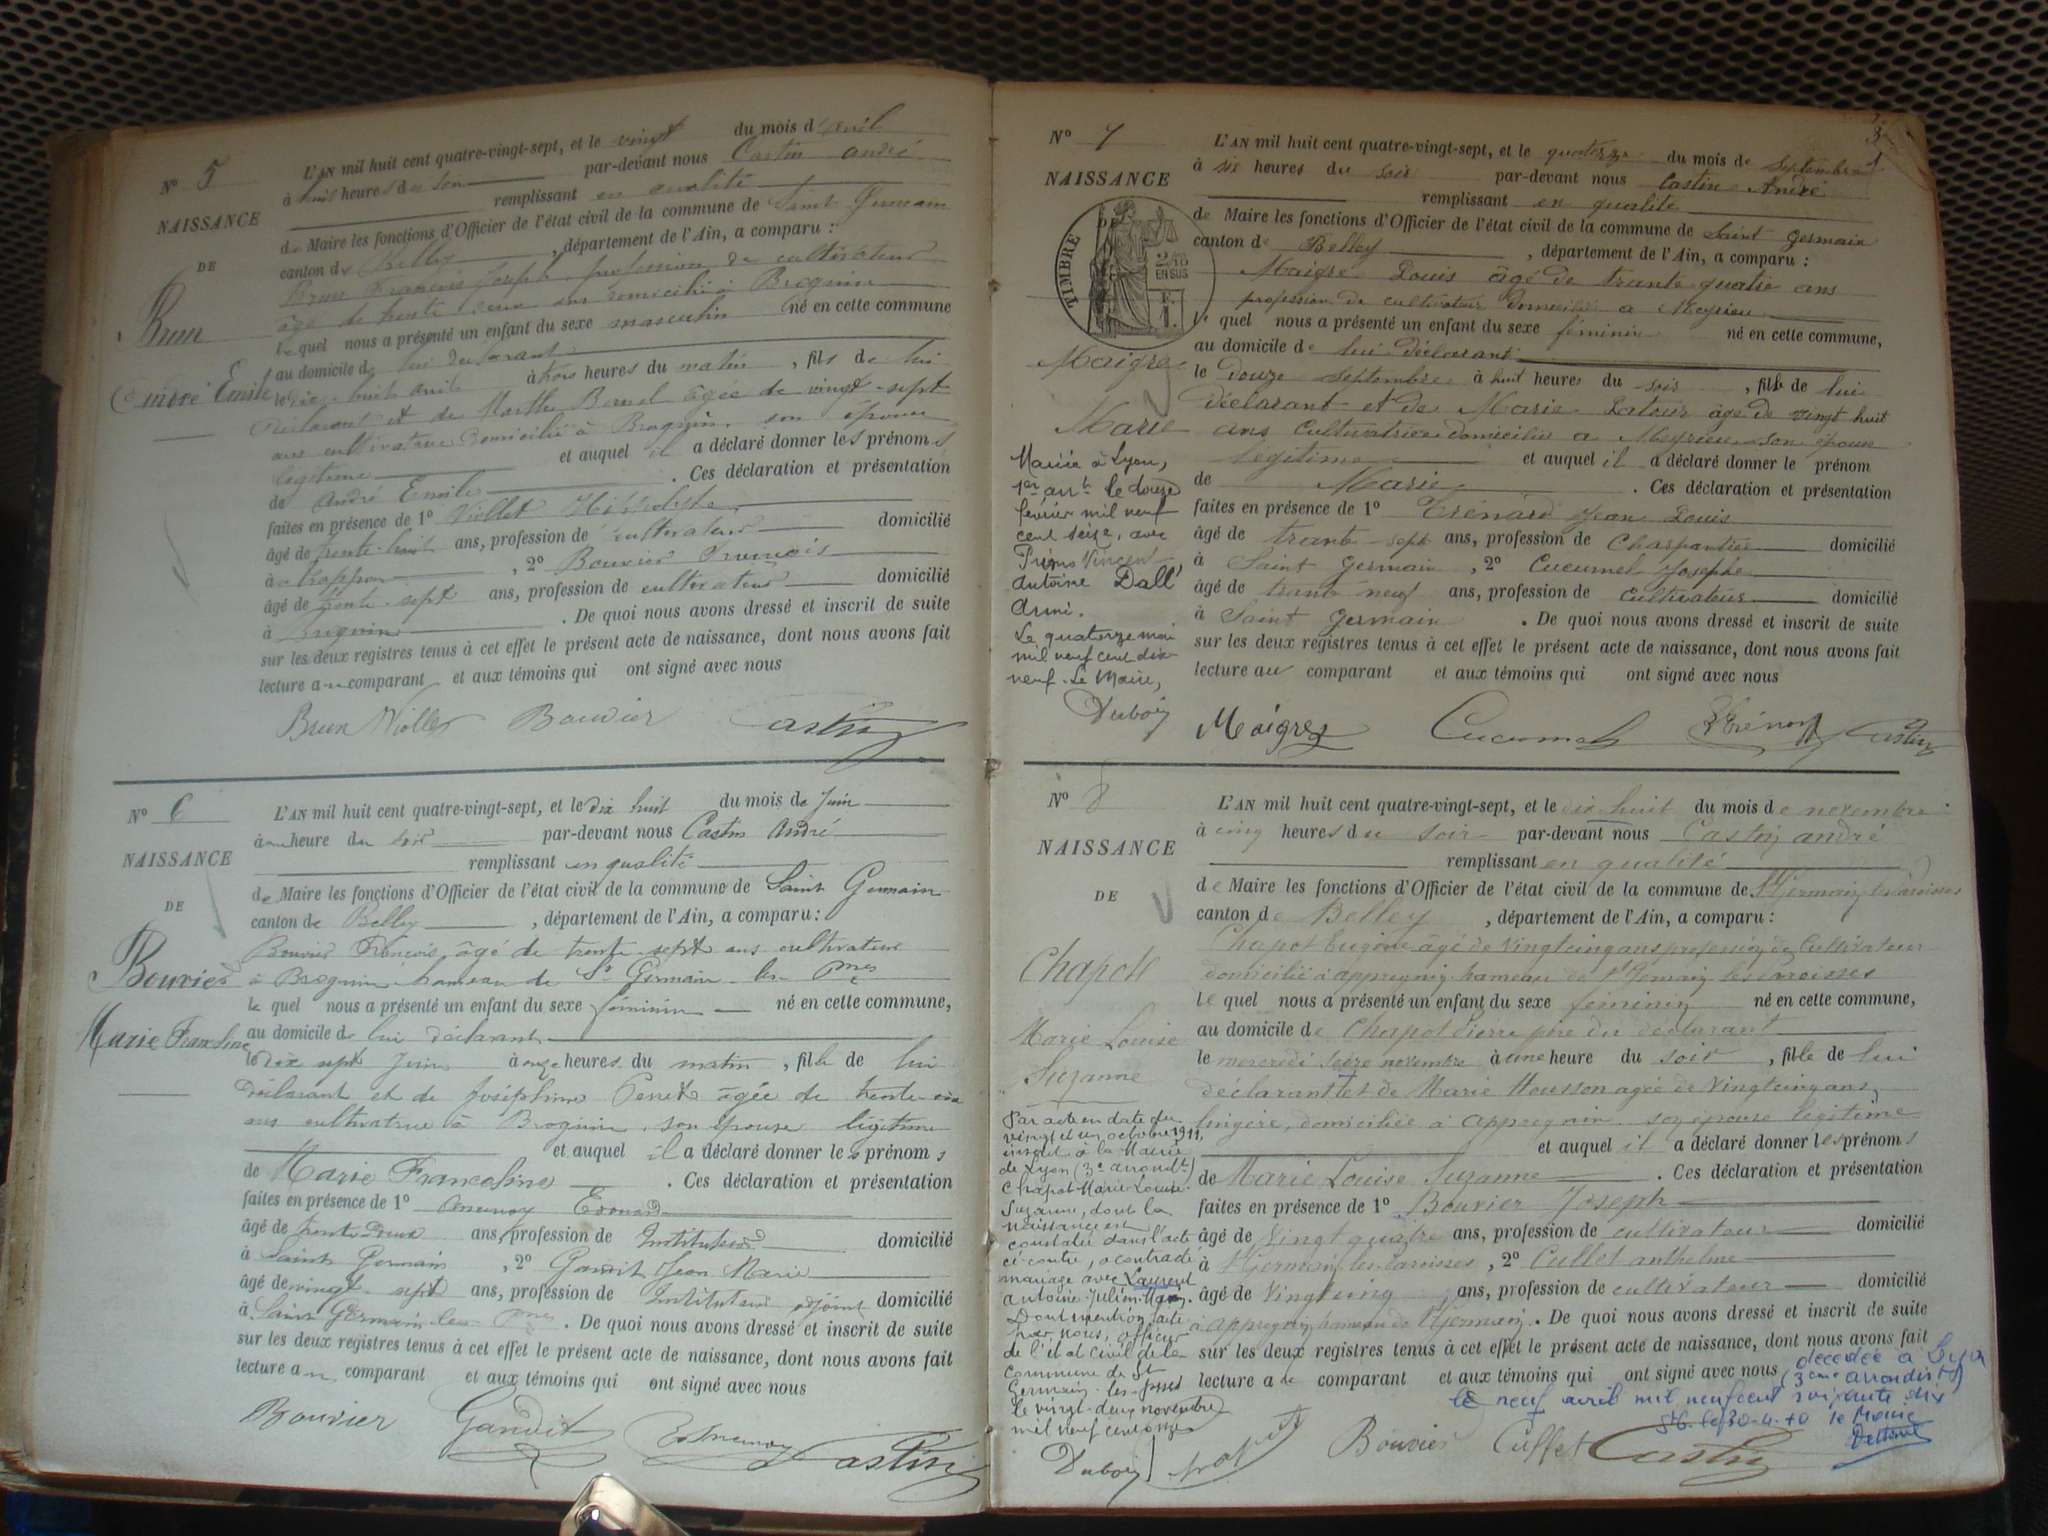 N° 5
NAISSANCE
DE
Brun
André Emile
L'AN mil huit cent quatre-vingt-sept, et le vingt du mois d'avril
à huit heures du soir par-devant nous Castin André
remplissant en qualité
de Maire les fonctions d'Officier de l'état civil de la commune de Saint Germain
canton de Belley, département de l'Ain, a comparu :
Brun François Joseph, profession de cultivateur
âgé de trente deux ans domicilié à Brognin
le quel nous a présenté un enfant du sexe masculin né en cette commune
au domicile de lui déclarant
le dix-huit avril à trois heures du matin, fils de lui
déclarant et de Marthe âgée de vingt-sept
ans cultivatrice domiciliée à Brognin, son épouse
légitime et auquel il a déclaré donner les prénoms
de André Emile. Ces déclaration et présentation
faites en présence de 1° Viollet Hippolyte
âgé de trente-huit ans, profession de cultivateur domicilié
à, 2° Bouvier François
âgé de trente-sept ans, profession de cultivateur domicilié
à Brognin. De quoi nous avons dressé et inscrit de suite
sur les deux registres tenus à cet effet le présent acte de naissance, dont nous avons fait
lecture au comparant et aux témoins qui ont signé avec nous
Brun Viollet Bouvier Castin
N° 6
NAISSANCE
DE
Bouvier
Marie Francoline
L'AN mil huit cent quatre-vingt-sept, et le dix huit du mois de juin
à une heure du soir par-devant nous Castin André
remplissant en qualité
de Maire les fonctions d'Officier de l'état civil de la commune de Saint Germain
canton de Belley, département de l'Ain, a comparu :
Bouvier François, âgé de trente-sept ans cultivateur
à Brognin hameau de St Germain-les-Pses
le quel nous a présenté un enfant du sexe féminin né en cette commune,
au domicile de lui déclarant
le dix sept juin à onze heures du matin, fille de lui
déclarant et de Joséphine Perret âgée de trente-six
ans cultivatrice à Brognin, son épouse légitime
et auquel il a déclaré donner les prénoms
de Marie Francoline. Ces déclaration et présentation
faites en présence de 1° Edouard
âgé de trente deux ans, profession de Instituteur domicilié
à Saint Germain, 2° Gandit Jean Marie
âgé de vingt-sept ans, profession de Instituteur adjoint domicilié
à Saint Germain les. De quoi nous avons dressé et inscrit de suite
sur les deux registres tenus à cet effet le présent acte de naissance, dont nous avons fait
lecture au comparant et aux témoins qui ont signé avec nous
Bouvier Gandit Castin
N° 7
NAISSANCE
TIMBRE
2/10
EN SUS
Maigre
Marie
Mariée à Lyon,
1er arrt le douze
février mil neuf
cent seize, avec
Primo Vincent
Antoine Dall'
Armi.
Le quatorze mai
mil neuf cent dix-
neuf. Le Maire,
Dubois
L'AN mil huit cent quatre-vingt-sept, et le quatorze du mois de septembre
à six heures du soir par-devant nous Castin André
remplissant en qualité
de Maire les fonctions d'Officier de l'état civil de la commune de Saint Germain
canton de Belley, département de l'Ain, a comparu :
Maigre Louis âgé de trante quatre ans
profession de cultivateur domicilié a Meyrieu
le quel nous a présenté un enfant du sexe féminin né en cette commune,
au domicile de lui déclarant
le douze septembre à huit heures du soir, fille de lui
déclarant et de Marie Latour âgé de vingt huit
ans cultivatrice domicilié a Meyrieu son épouse
légitime et auquel il a déclaré donner le prénom
de Marie. Ces déclaration et présentation
faites en présence de 1° Trénard Jean Louis
âgé de trante-sept ans, profession de Charpantier domicilié
à Saint Germain, 2° Cucumel Josephe
âgé de trante neuf ans, profession de cultivateur domicilié
à Saint Germain. De quoi nous avons dressé et inscrit de suite
sur les deux registres tenus à cet effet le présent acte de naissance, dont nous avons fait
lecture au comparant et aux témoins qui ont signé avec nous
Maigre Cucumel Trénard Castin
N° 8
NAISSANCE
DE
Chapot
Marie Louise
Suzanne
Par acte en date du
vingt et un octobre 1911,
inscrit à la Mairie
de Lyon (3e arrondt)
Chapot Marie-Louise-
Suzanne, dont la
naissance est
constatée dans l'acte
ci-contre, a contracté
mariage avec Laurent
Antoine-Julien-
Dont mention faite
par nous, officier
de l'état civil de la
commune de St
Germain-les-Psses
le vingt-deux novembre
mil neuf cent onze
Dubois
L'AN mil huit cent quatre-vingt-sept, et le dix-huit du mois de novembre
à cinq heures du soir par-devant nous Castin andré
remplissant en qualité
de Maire les fonctions d'Officier de l'état civil de la commune de St Germain les Paroisses
canton de Belley, département de l'Ain, a comparu :
Chapot Eugène âgé de vingt cinq ans profession de Cultivateur
domicilié à appregnin hameau de St Germain les Paroisses
le quel nous a présenté un enfant du sexe féminin né en cette commune,
au domicile de Chapot Pierre père du déclarant
le mercredi seize novembre à une heure du soir, fille de lui
déclarant et de Marie Housson agée de vingt cinq ans,
lingère, domiciliée à appregnin son épouse légitime
et auquel il a déclaré donner les prénoms
de Marie Louise Suzanne. Ces déclaration et présentation
faites en présence de 1° Bouvier Joseph
âgé de vingt quatre ans, profession de cultivateur domicilié
à St Germain les Paroisses, 2° Cullet anthelme
âgé de vingt cinq ans, profession de cultivateur domicilié
à appregnin hameau de St Germain. De quoi nous avons dressé et inscrit de suite
sur les deux registres tenus à cet effet le présent acte de naissance, dont nous avons fait
lecture au comparant et aux témoins qui ont signé avec nous
décédée à Lyon
(3ème arrondist)
le neuf avril mil neuf cent soixante dix
le 30-4-70 le Maire
Chapot Bouvier Cullet Castin